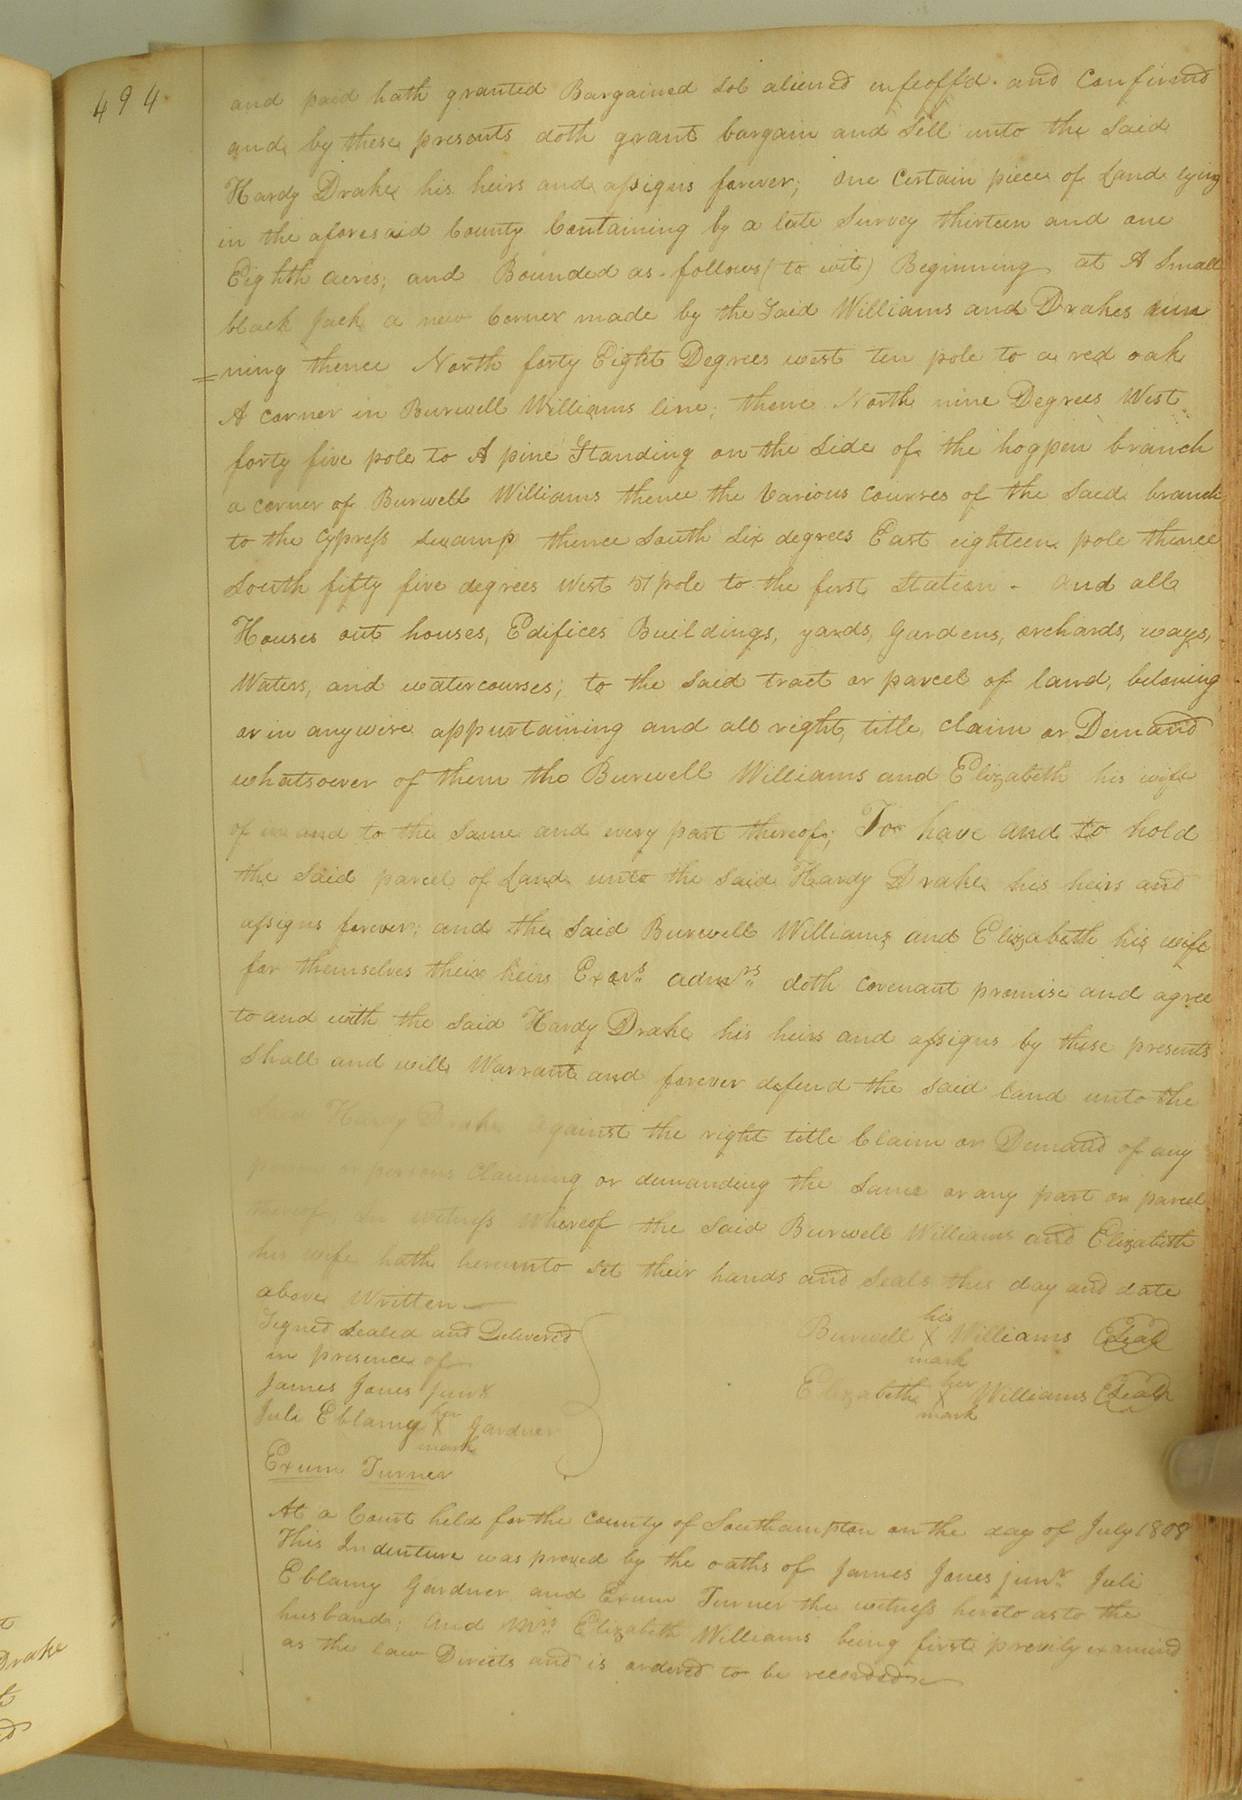 494
and paid hath granted Bargained Sol aliened enfeoffd. and Confirmd
and by these presents doth grant bargain and Sell unto the Said
Hardy Drake his heirs and assigns forever; One Certain piece of Land lying
in the aforesaid County Containing by a late Survey thirteen and one
Eighth acres; and Bounded as follows (to wit) Beginning at A Small
black Jack a new Corner made by the Said Williams and Drakes run
=ning thence North forty Eight Degrees west ten pole to a red oak
A corner in Burwell Williams line; thence North nine Degrees West
forty five pole to A pine Standing on the Side of the hogpen branch
a corner of Burwell Williams thence the Various courses of the Said branch
to the Cypress Swamp thence South Six degrees East eighteen pole thence
South fifty five degrees West 51 pole to the first Station - and all
Houses out houses, Edifices Buildings, yards, Gardens, orchards, ways,
Waters, and watercourses; to the Said tract or parcel of land, beloning
or in anywise appurtaining and all right, title, claim or Demand
whatsoever of them the Burwell Williams and Elizabeth his wife
of in and to the Same and every part thereof; To have and to hold
the Said parcel of Land unto the Said Hardy Drake his heirs and
assigns forever; and the Said Burwell Williams and Elizabeth his wife
for themselves their heirs Exors admrs doth Covenant promise and agree
to and with the Said Hardy Drake his heirs and assigns by these presents
Shall and will Warrant and forever defend the Said Land unto the
Said Hardy Drake Against the right title Claim or Demand of any
person or persons Claiming or demanding the Same or any part or parcel
thereof. In witness Whereof the Said Burwell Williams and Elizabeth
his wife hath hereunto Set their hands and Seals this day and date
above Written
Signed Sealed and Delivered
in presence of
James Jones Junr
Juli Eblamy her X mark Gardner
Exum Turner
his
Burwell X Williams (Seal)
mark
her
Elizabeth X Williams (Seal)
mark
At a Court held for the County of Southampton on the day of July 1808
This Indenture was proved by the oaths of James Jones junr Juli
Eblamy Gardner and Exum Turner the witness hereto as to the
husband; and Mrs Elizabeth Williams being first previly examined
as the law Directs and is ordered to be recorded
Drake